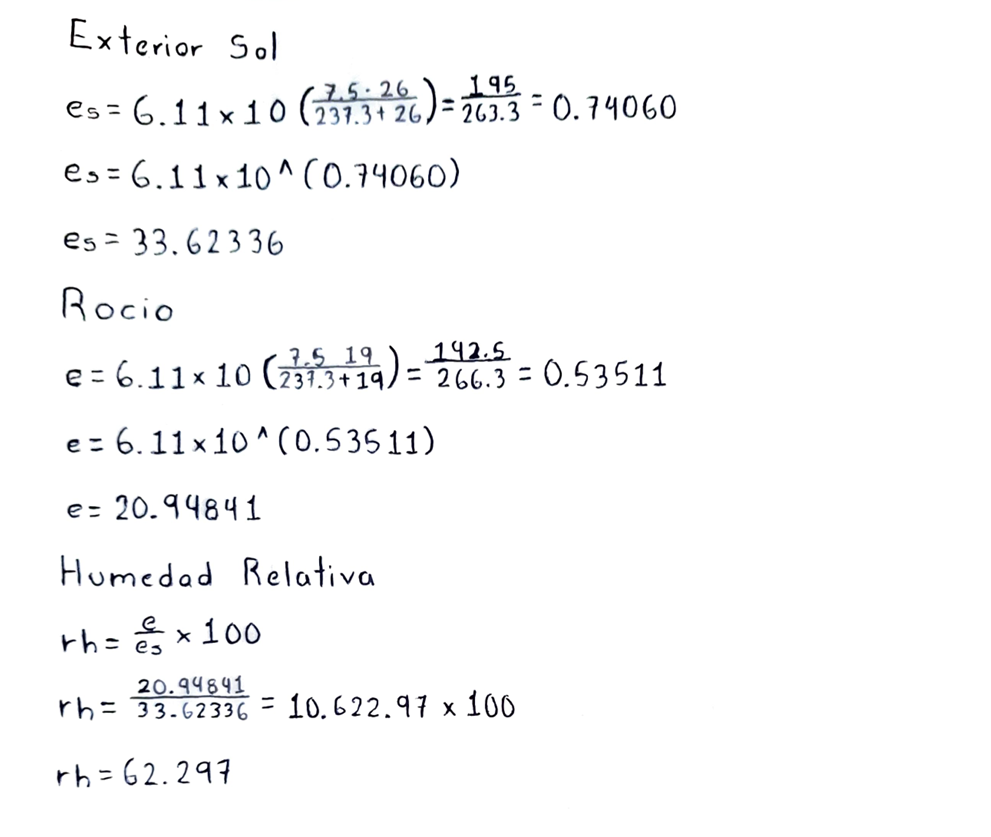 Exterior Sol
es = 6.11 x 10 (7.5 · 26 / 237.3 + 26) = 195 / 263.3 = 0.74060
es = 6.11 x 10 ^ (0.74060)
es = 33.62336
Rocio
e = 6.11 x 10 (7.5 19 / 237.3 + 19) = 142.5 / 266.3 = 0.53511
e = 6.11 x 10 ^ (0.53511)
e = 20.94841
Humedad Relativa
rh = e / es x 100
rh = 20.94841 / 33.62336 = 10.622.97 x 100
rh = 62.297